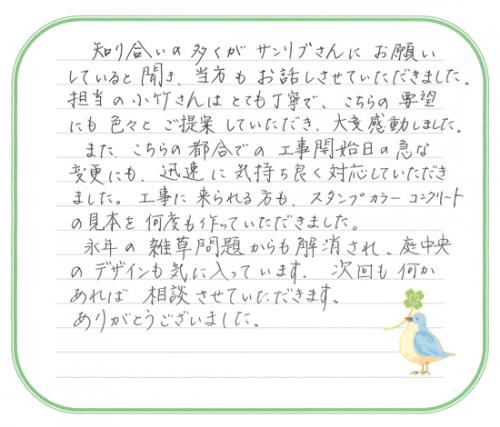 知り合いの多くがサンリブさんにお願い
していると聞き、当方もお話しさせていただきました。
担当の小竹さんはとても丁寧で、こちらの要望
にも色々とご提案していただき、大変感動しました。
また、こちらの都合での工事開始日の急な
変更にも、迅速に気持ち良く対応していただき
ました。工事に来られる方も、スタンプカラーコンクリート
の見本を何度も作っていただきました。
永年の雑草問題からも解消され、庭中央
のデザインも気に入っています。次回も何か
あれば相談させていただきます。
ありがとうございました。